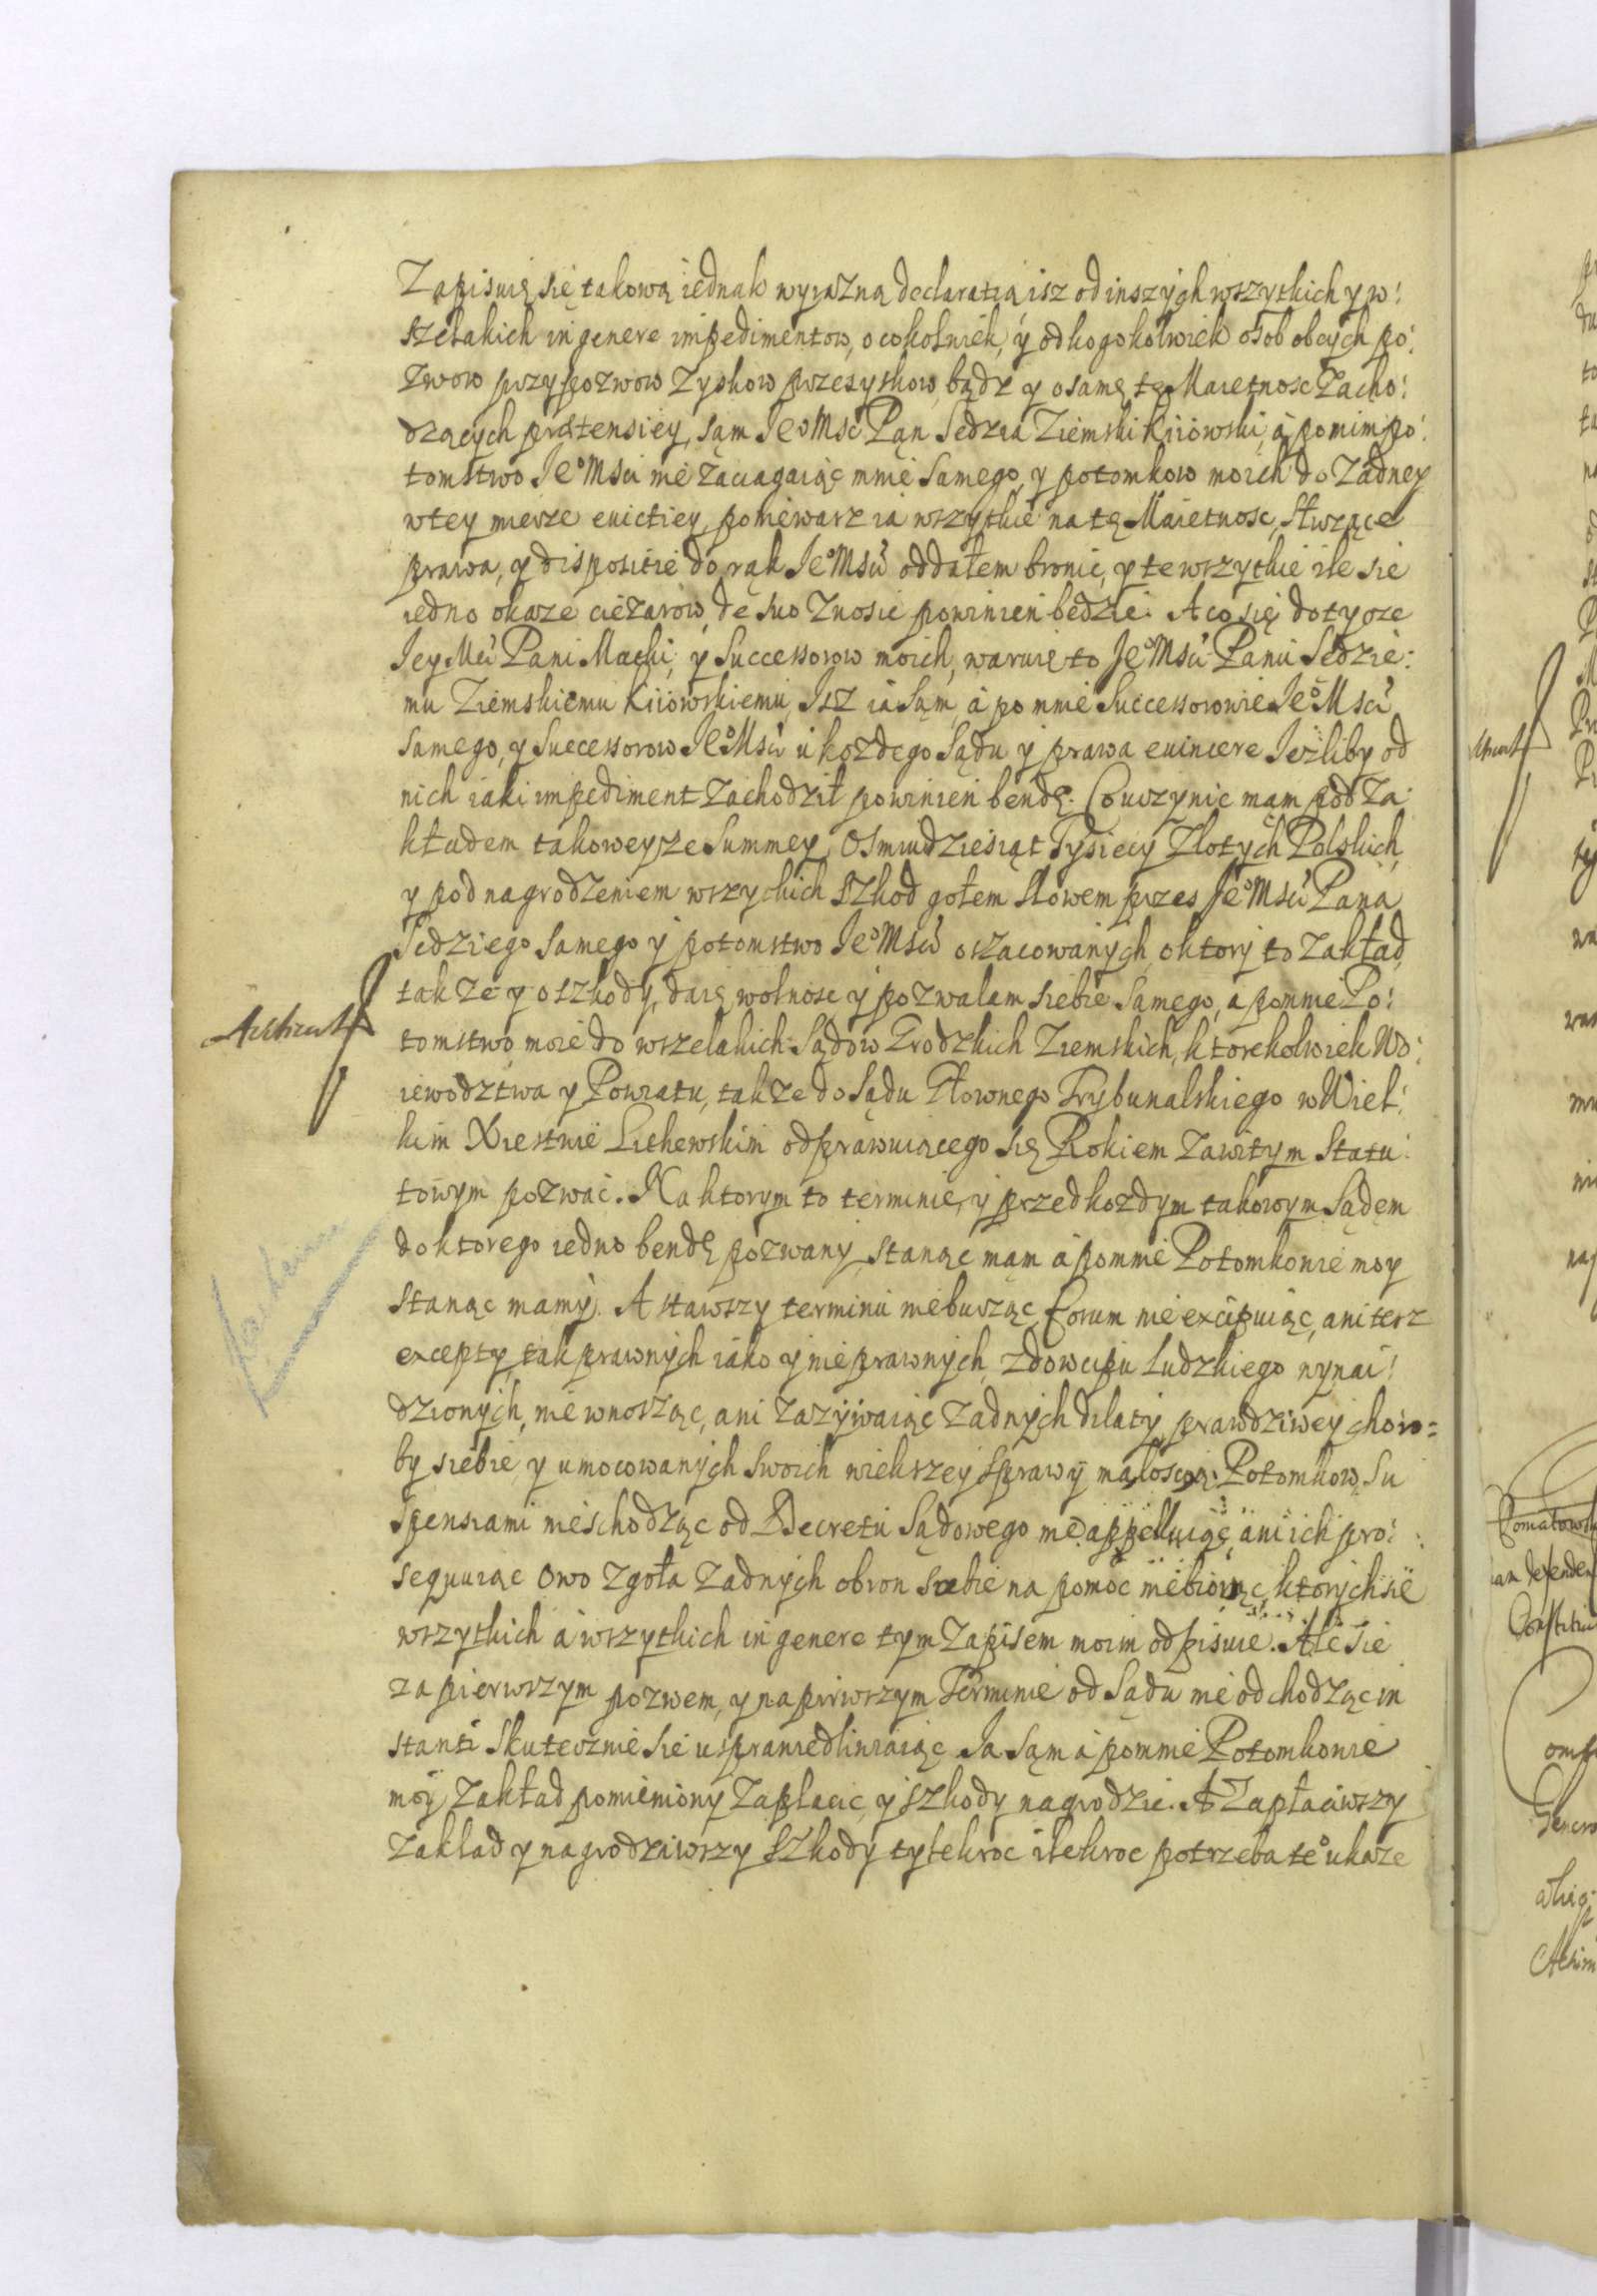 Zapisuię się takową iednak wyraźną declaratią isz od inszych wszytkich y w:
szelakich in genere impedimentow, o cokolwiek, y od kogokolwiek osob obcych po:
zwow przypozwow zyskow przezyskow, bądz y o samę tę Maietnosc zacho:
dzących prętensiey, sąm Jeo Msc Pąn Sędzia Ziemski Kiiowski, à po nim po:
tomstwo Jeo Msci nie zaciagaiąc mnie samego, y potomkow moich do zadney
w tey mierze euictiey, poniewarz ia wszytkie na tę Maietnosc, służące
prawa, y dispositie do rąk Jeo Msci oddałem bronic, y te wszytkie ile sie
iedno okaze ciężarow, de suo znosic powinien bedzie. A co się dotycze
Jey Mci Pani Matki, y Successorow moich, waruię to Jeo Msci Panu Sędzie:
mu Ziemskiemu Kiiowskiemu, Isz ia sąm, à po mnie Successorowie Jeo Msci
samego, y Successorow Jeo Msci u kozdego sądu y prawa euincere Jezliby od
nich iaki impediment zachodził powinien bendę. Co uczynic mam pod za:
kładem takoweyze Summey, Osmiudziesiąt Tysiecy Złotych Polskich,
y pod nagrodzeniem wszytkich szkod gołem słowem przes Jeo Msci Pana
Sedziego samego y potomstwo Jeo Msci oszacowanych, o ktory to zakład,
takze y o szkody, daię wolnosc y pozwalam siebie samego, a po mnie Po:
tomstwo moie do wszelakich Sądow Grodzkich Ziemskich, ktorekolwiek Wo:
iewodztwa y Powiatu, takze do Sądu Głownego Trybunalskiego w Wiel:
kim Xiestwie Litewskim odprawuiącego się Rokiem zawitym Statu:
towym pozwac. Na ktorym to terminie, y przed kozdym takowym Sądem
do ktorego iedno bendę pozwany, stanąc mąm à po mnie Potomkowie moy
stanąc mamy. A stawszy terminu nie burząc, forum nie excipuiąc, ani tesz
excepty, tak prawnych iako y nieprawnych, z dowcipu ludzkiego wynai:
dzionych, nie wnosząc, ani zazywaiąc zadnych dilaty, prawdziwey choro=
by siebie, y umocowanych swoich wiekszey sprawy małoscią Potomkow, su
spensiami nie schodząc od Decretu Sądowego nie appelluiąc, ani ich pro:
sequuiąc owo zgoła zadnych obron siebie na pomoc nie biorąc, ktorych sie
wszytkich à wszytkich in genere tym zapisem moim odpisuie. Ale sie
za pierwszym pozwem, y na pirwszym Terminie od Sądu nie odchodząc in
stanti skutecznie sie usprawiedliwiaiąc Ja sąm à po mnie Potomkowie
moy zakład pomieniony zapłacic, y szkody nagrodzic. A zapłaciwszy
zakład y nagrodziwszy szkody tylekroc ilekroc potrzeba te° ukaze